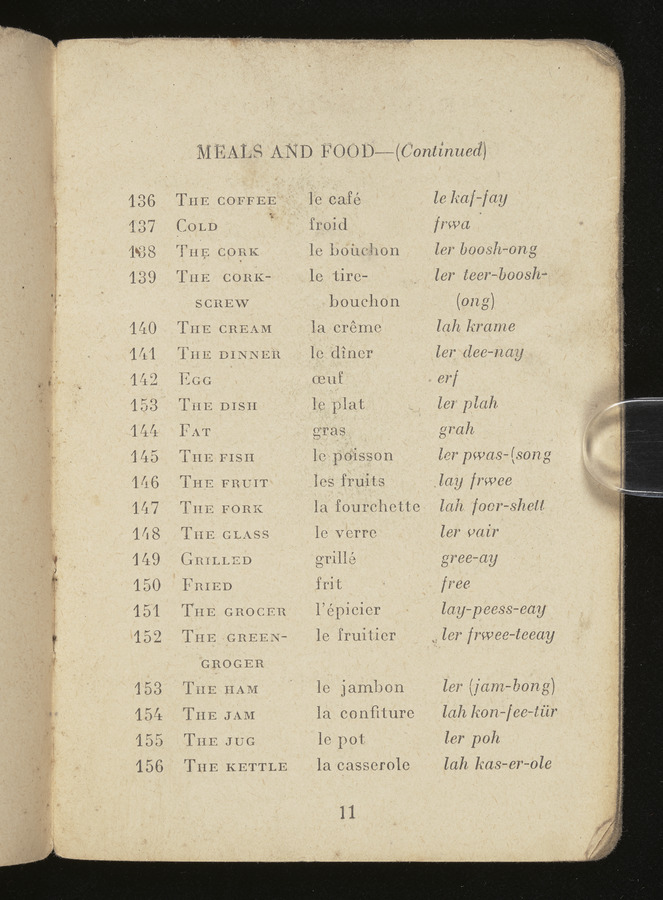 MEALS AND FOOD—(Continued)
136 THE COFFEE le café le kaf-fay
137 COLD froid frwa
138 THE CORK le bouchon ler boosh-ong
139 THE CORK- le tire- ler teer-boosh-
SCREW bouchon (ong)
140 THE CREAM la crême lah krame
141 THE DINNER le dîner ler dee-nay
142 EGG œuf erf
153 THE DISH le plat ler plah
144 FAT gras grah
145 THE FISH le poisson ler pwas-(song
146 THE FRUIT les fruits lay frwee
147 THE FORK la fourchette lah foor-shett
148 THE GLASS le verre ler vair
149 GRILLED grillé gree-ay
150 FRIED frit free
151 THE GROCER l'épicier lay-peess-eay
152 THE GREEN- le fruitier ler frwee-teeay
GROGER
153 THE HAM le jambon ler (jam-bong)
154 THE JAM la confiture lah kon-fee-tür
155 THE JUG le pot ler poh
156 THE KETTLE la casserole lah kas-er-ole
11